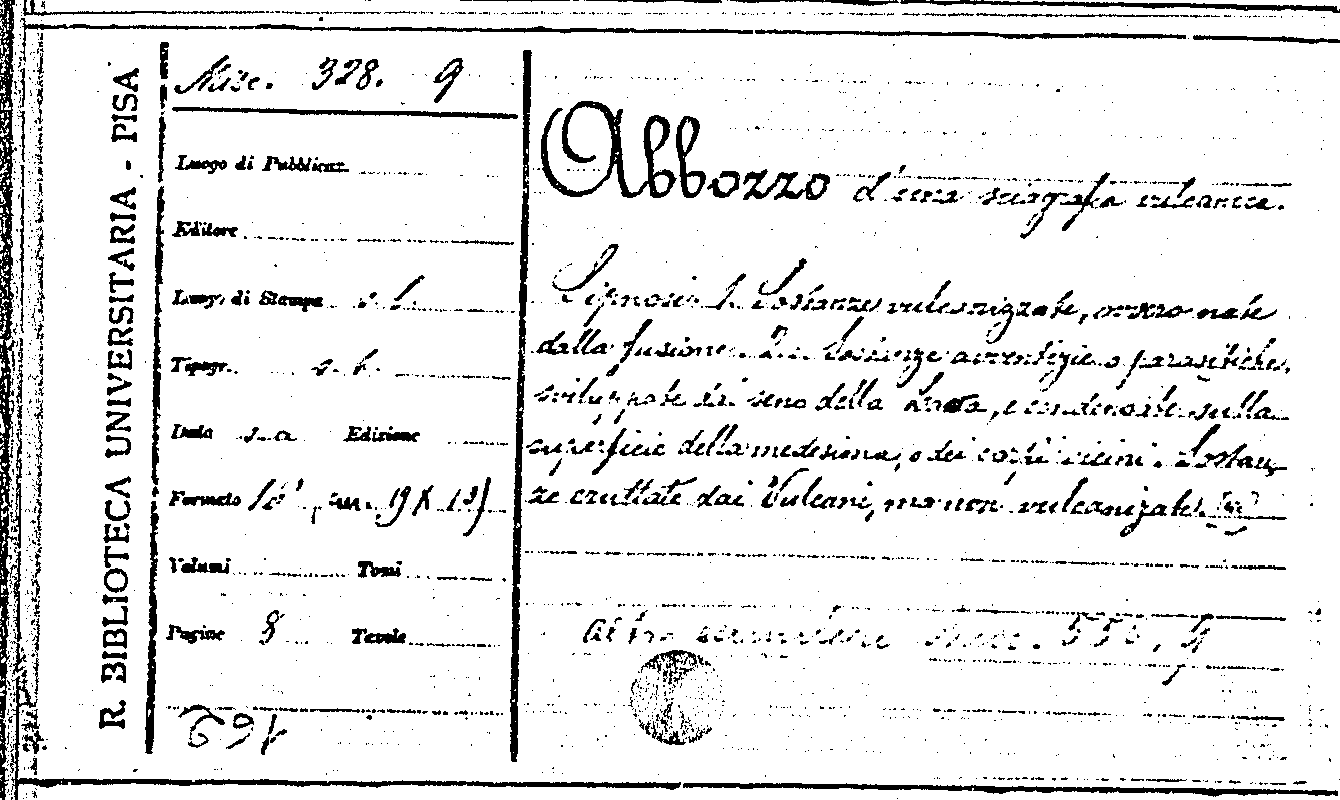 R. BIBLIOTECA UNIVERSITARIA - PISA
Misc. 328. 9
Luogo di Pubblicaz.
Editore
Luogo di Stampa s. l.
Tipogr. s. t.
Data s. a. Edizione
Formato 16°, (cm. 19 X 13)
Volumi Tomi
Pagine 8 Tavole
Abbozzo d'una sciagrafia vulcanica.
Sipnosi 1. Sostanze vulcanizzate, ovvero nate
dalla fusione. 2. Sostanze avventizie o parasitiche,
sviluppate dal seno della Lava, e condensate sulla
superficie della medesima, o dei corpi vicini. Sostan-
ze eruttate dai Vulcani, ma non vulcanizate.
Altro esemplare Misc. 9